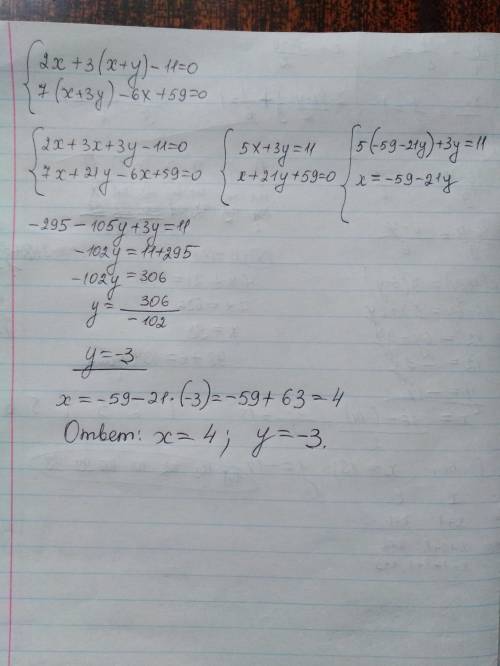 2x+3(x+y)-11=0
7(x+3y)-6x+59=0
2x+3x+3y-11=0 5x+3y=11 5(-59-21y)+3y=11
7x+21y-6x+59=0 x+21y+59=0 x=-59-21y
-295-105y+3y=11
-102y=11+295
-102y=306
y=306/-102
y=-3
x=-59-21·(-3)=-59+63=4
Ответ: x=4; y=-3.